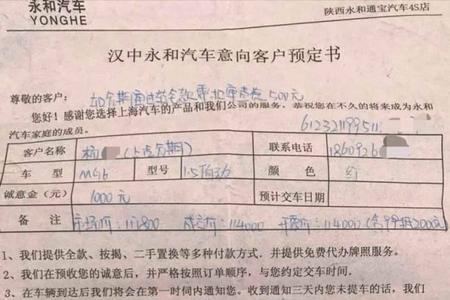 永和汽车
YONGHE
陕西永和通宝汽车4S店
汉中永和汽车意向客户预定书
尊敬的客户:
如分期通过车全款审批 500元
您好！感谢您选择上海汽车的产品和我们公司的服务，恭祝您在不久的将来成为永和
汽车家庭的成员。
61232119951
客户名称 杨 (上虎分期) 联系电话 1860926
车 型 MG6 型号 1.5 颜 色 红
诚意金（元） 1000元 预计交车日期
备 注 市场价:117800 成交价:114000 开票价:114000
1、我们提供全款、按揭、二手置换等多种付款方式，并提供免费代办牌照服务。
2、我们在预收您的诚意后，并严格按照订单顺序，与您约定交车时间。
3、在车辆到达后我们将会在第一时间内通知您。收到通知三天内您未提车的话，我们